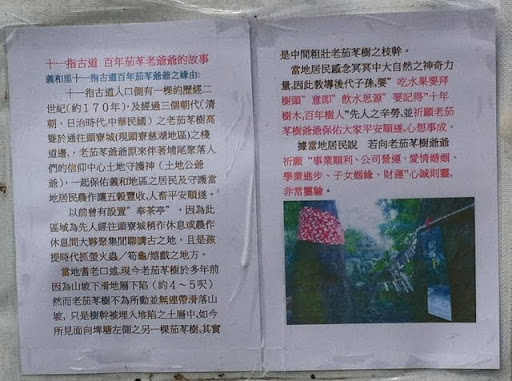 十一指古道 百年茄苳老爺爺的故事
義和里十一指古道百年茄苳爺爺之緣由:
十一指古道入口側有一棵約歷經二
世紀(約170年)及經過三個朝代(清
朝、日治時代,中華民國)之老茄苳樹高
聳於通往頭寮城(現頭寮慈湖地區)之棧
道邊,,老茄苳爺爺原來伴著埔尾聚落人
們的信仰中心土地守護神(土地公爺
爺),一起保佑義和地區之居民及守護當
地居民農作讓五穀豐收,人畜平安順遂。
以前曾有設置"奉茶亭",因為此
區域為先人經往頭寮城稍作休息或農作
休息間大夥聚集閒聊講古之地,且是孩
提時代抓螢火蟲╱筍龜╱嬉戲之地方。
當地耆老口述,現今老茄苳樹於多年前
因為山坡下滑地層下陷(約4~5呎)
然而老茄苳樹不為所動並無連帶滑落山
坡,只是樹幹被埋入堆陷之土層中,如今
所見面向埤塘左側之另一棵茄苳樹,其實
是中間粗壯老茄苳樹之枝幹。
當地居民感念冥冥中大自然之神奇力
量,因此教導後代子孫,要"吃水果要拜
樹頭"意即"飲水思源"要記得"十年
樹木,百年樹人"先人之辛勞,並祈願老茄
苳樹爺爺保佑大家平安順遂,心想事成。
據當地居民說 若向老茄苳樹爺爺
祈願"事業順利、公司營運、愛情婚姻、
學業進步、子女姻緣、財運"心誠則靈,
非常靈驗。